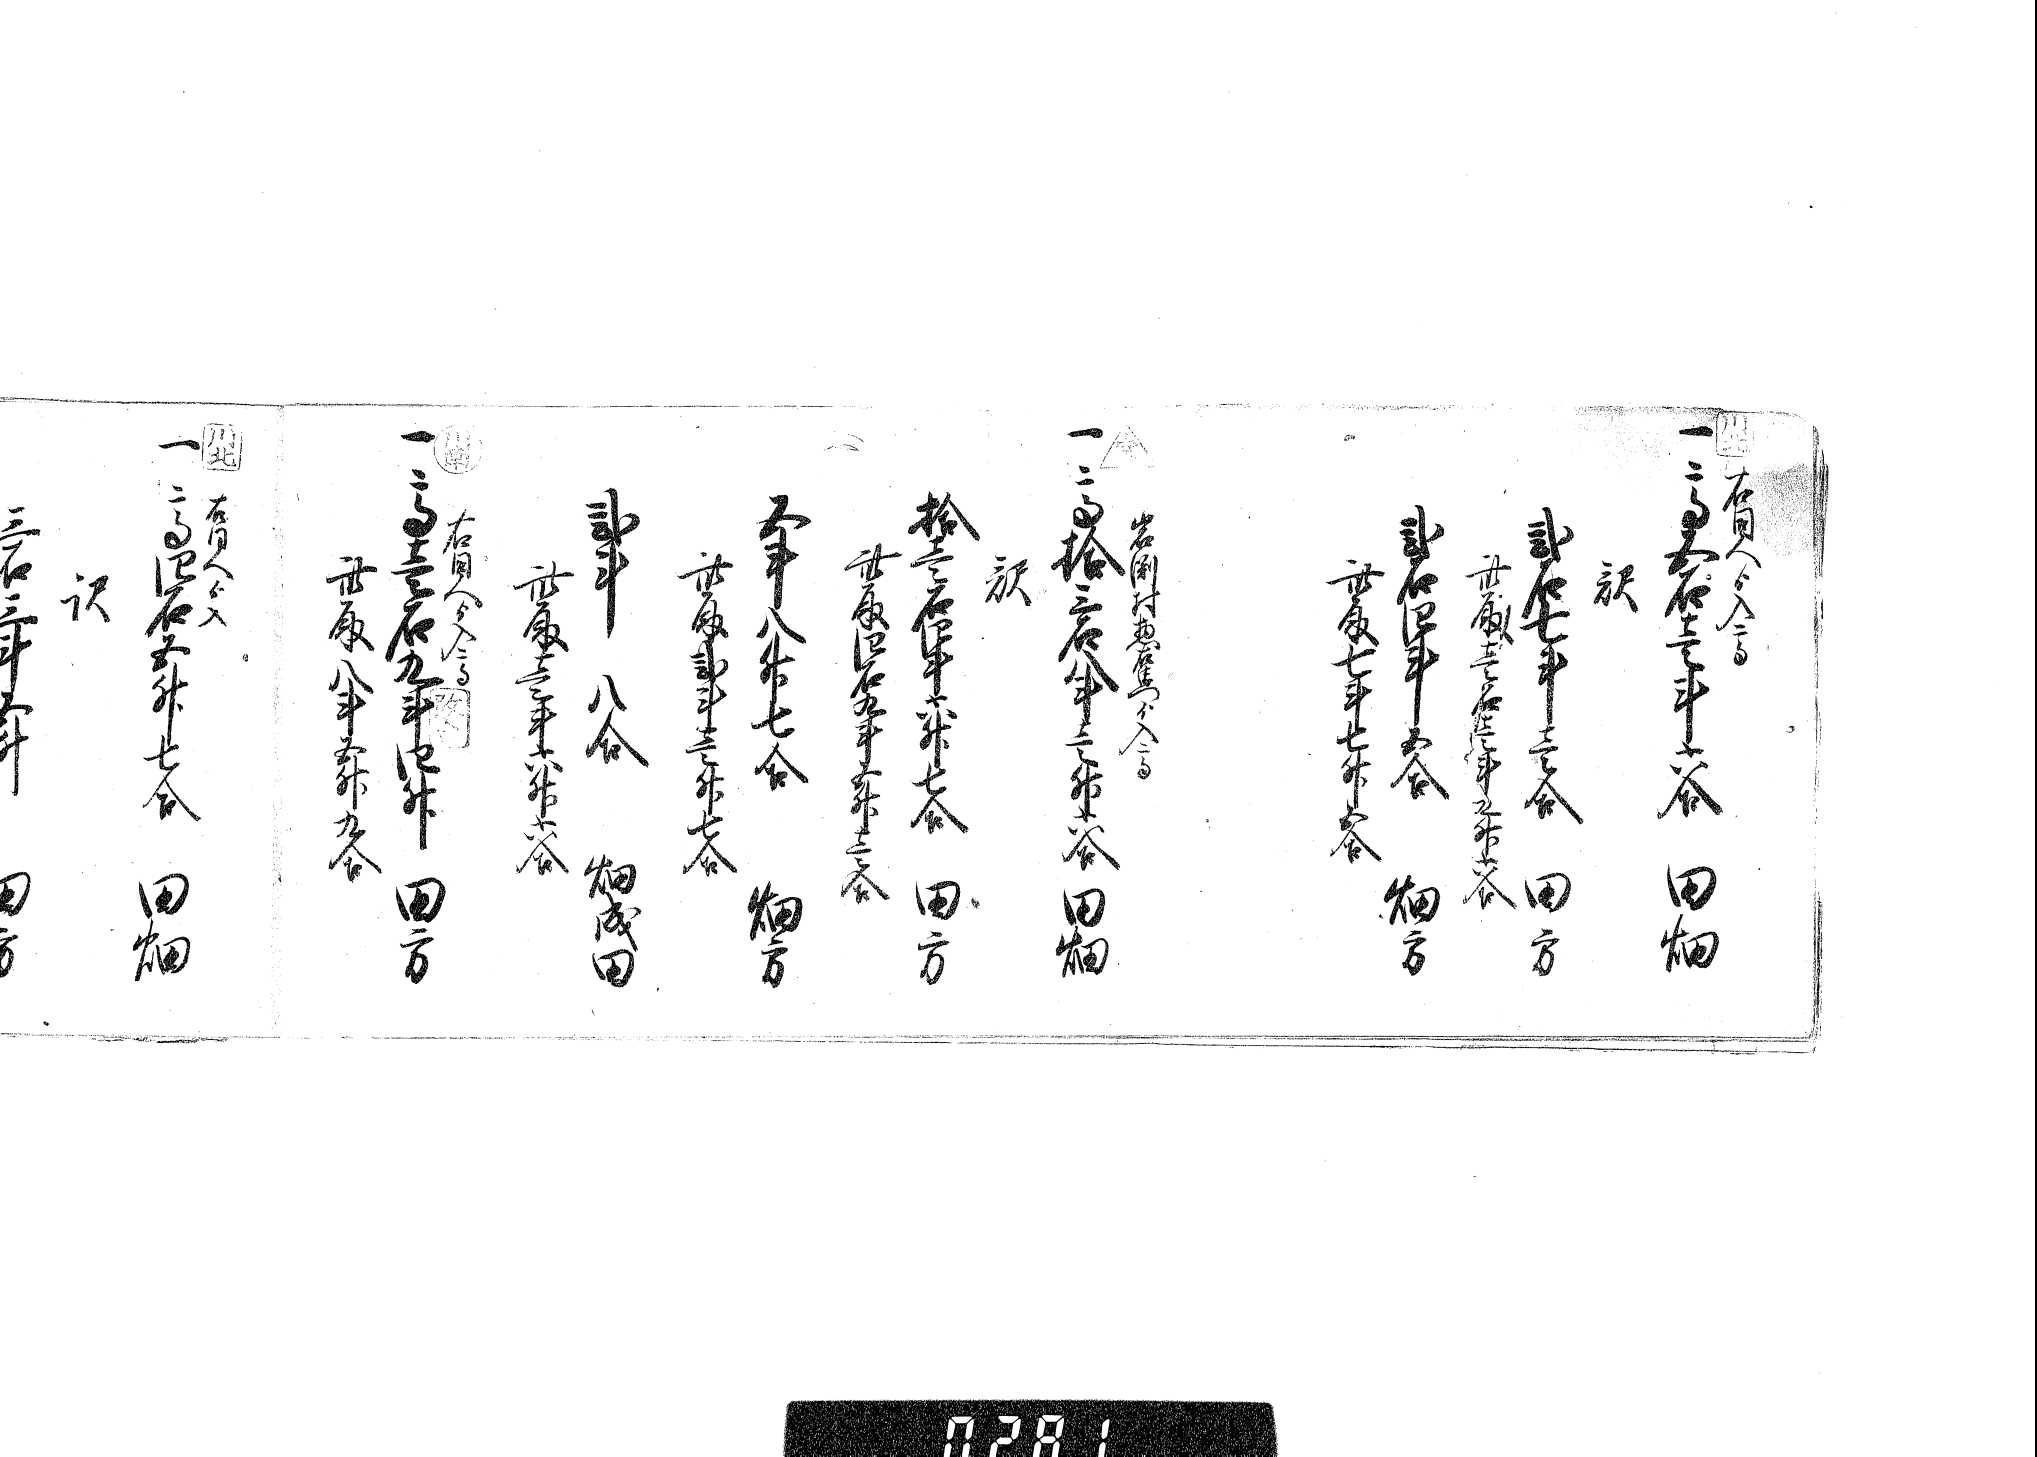 川北
右同人ゟ入ニ高
一ニ高五石壱斗六合 田畑
訳
弐石七斗壱合 田方
此取壱石壱斗九升六合
弐石四斗五合 畑方
此取七斗七升五合
岩渕村ゟ入ニ高
一ニ高拾三石八斗壱升六合 田畑
訳
拾壱石四斗六升七合 田方
此取四石九斗五升壱合
五斗八升七合 畑方
此取弐斗壱升七合
弐斗八合 畑成田
此取壱斗六升六合
川南
右同人ゟ入ニ高
一ニ高壱石九斗四升 田方
此取八斗五升九合
川北
右同人ゟ入
一ニ高四石五升七合 田畑
訳
三石三斗五升 田方
0281